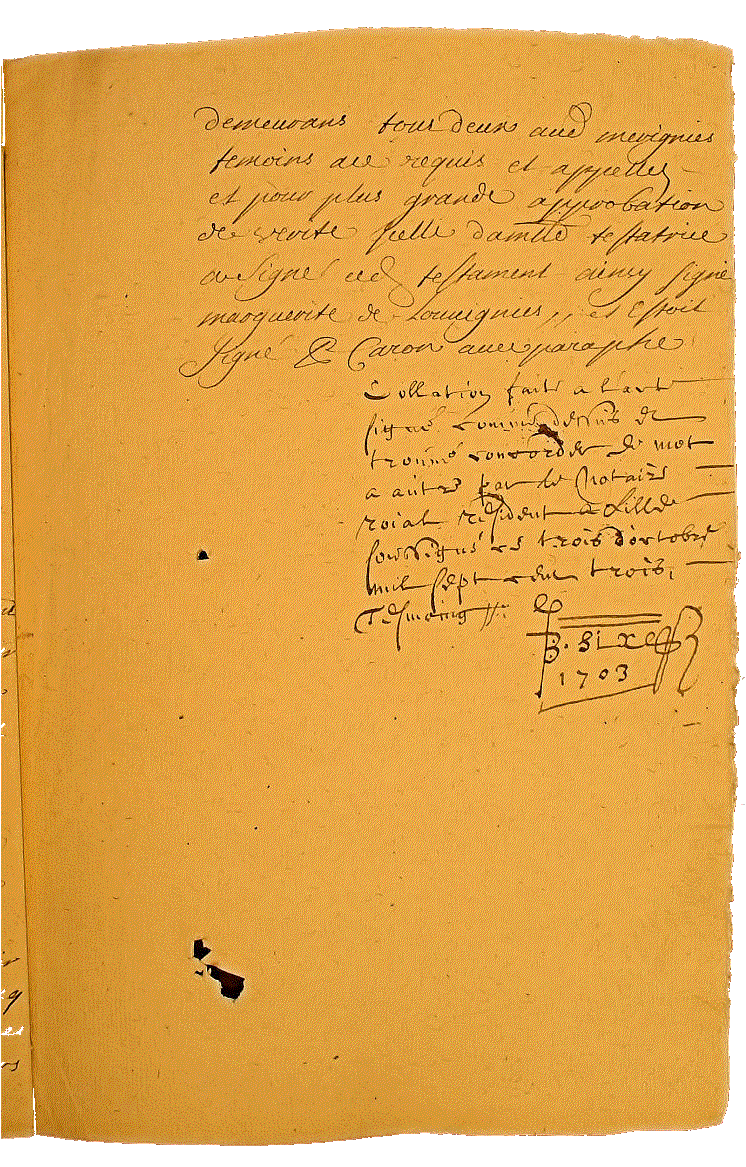 demeurans tous deux aud mevignies
temoins ace requis et appellez
et pour plus grande approbation
de verité icelle damlle testatrice
a signé ced testament ainsy signé
marguerite de Louvignies,, et Estoit
signé C Caron avec paraphe
Collation faite a l'acte
signé comme dessus et
trouvé concorder de mot
a autre par le Notaire
roial resident a Lille
soussigné ce trois d'octobre
mil sept cent trois,
Tesmoing
B. Six
1703